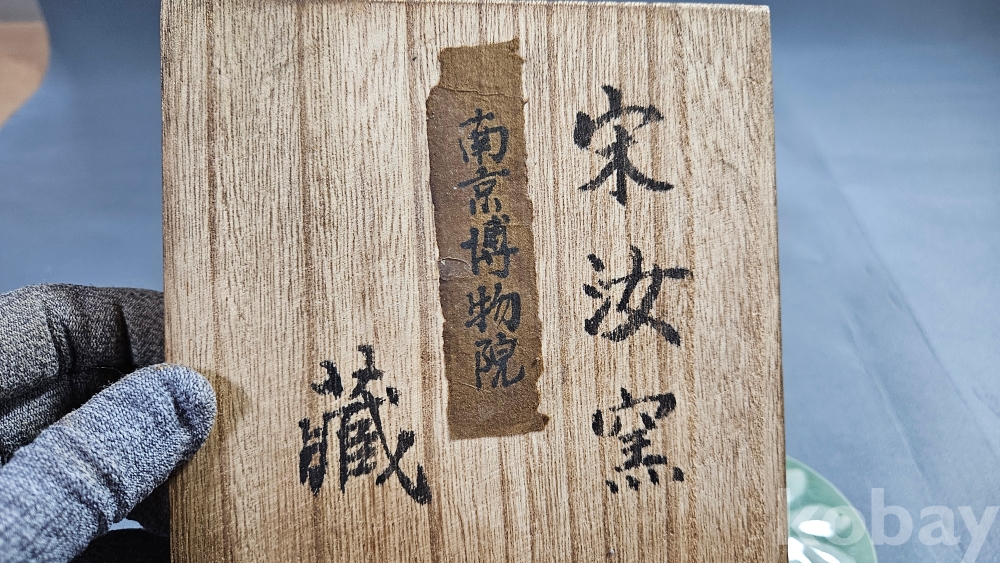 宋汝窑
南京博物院
藏
kobay